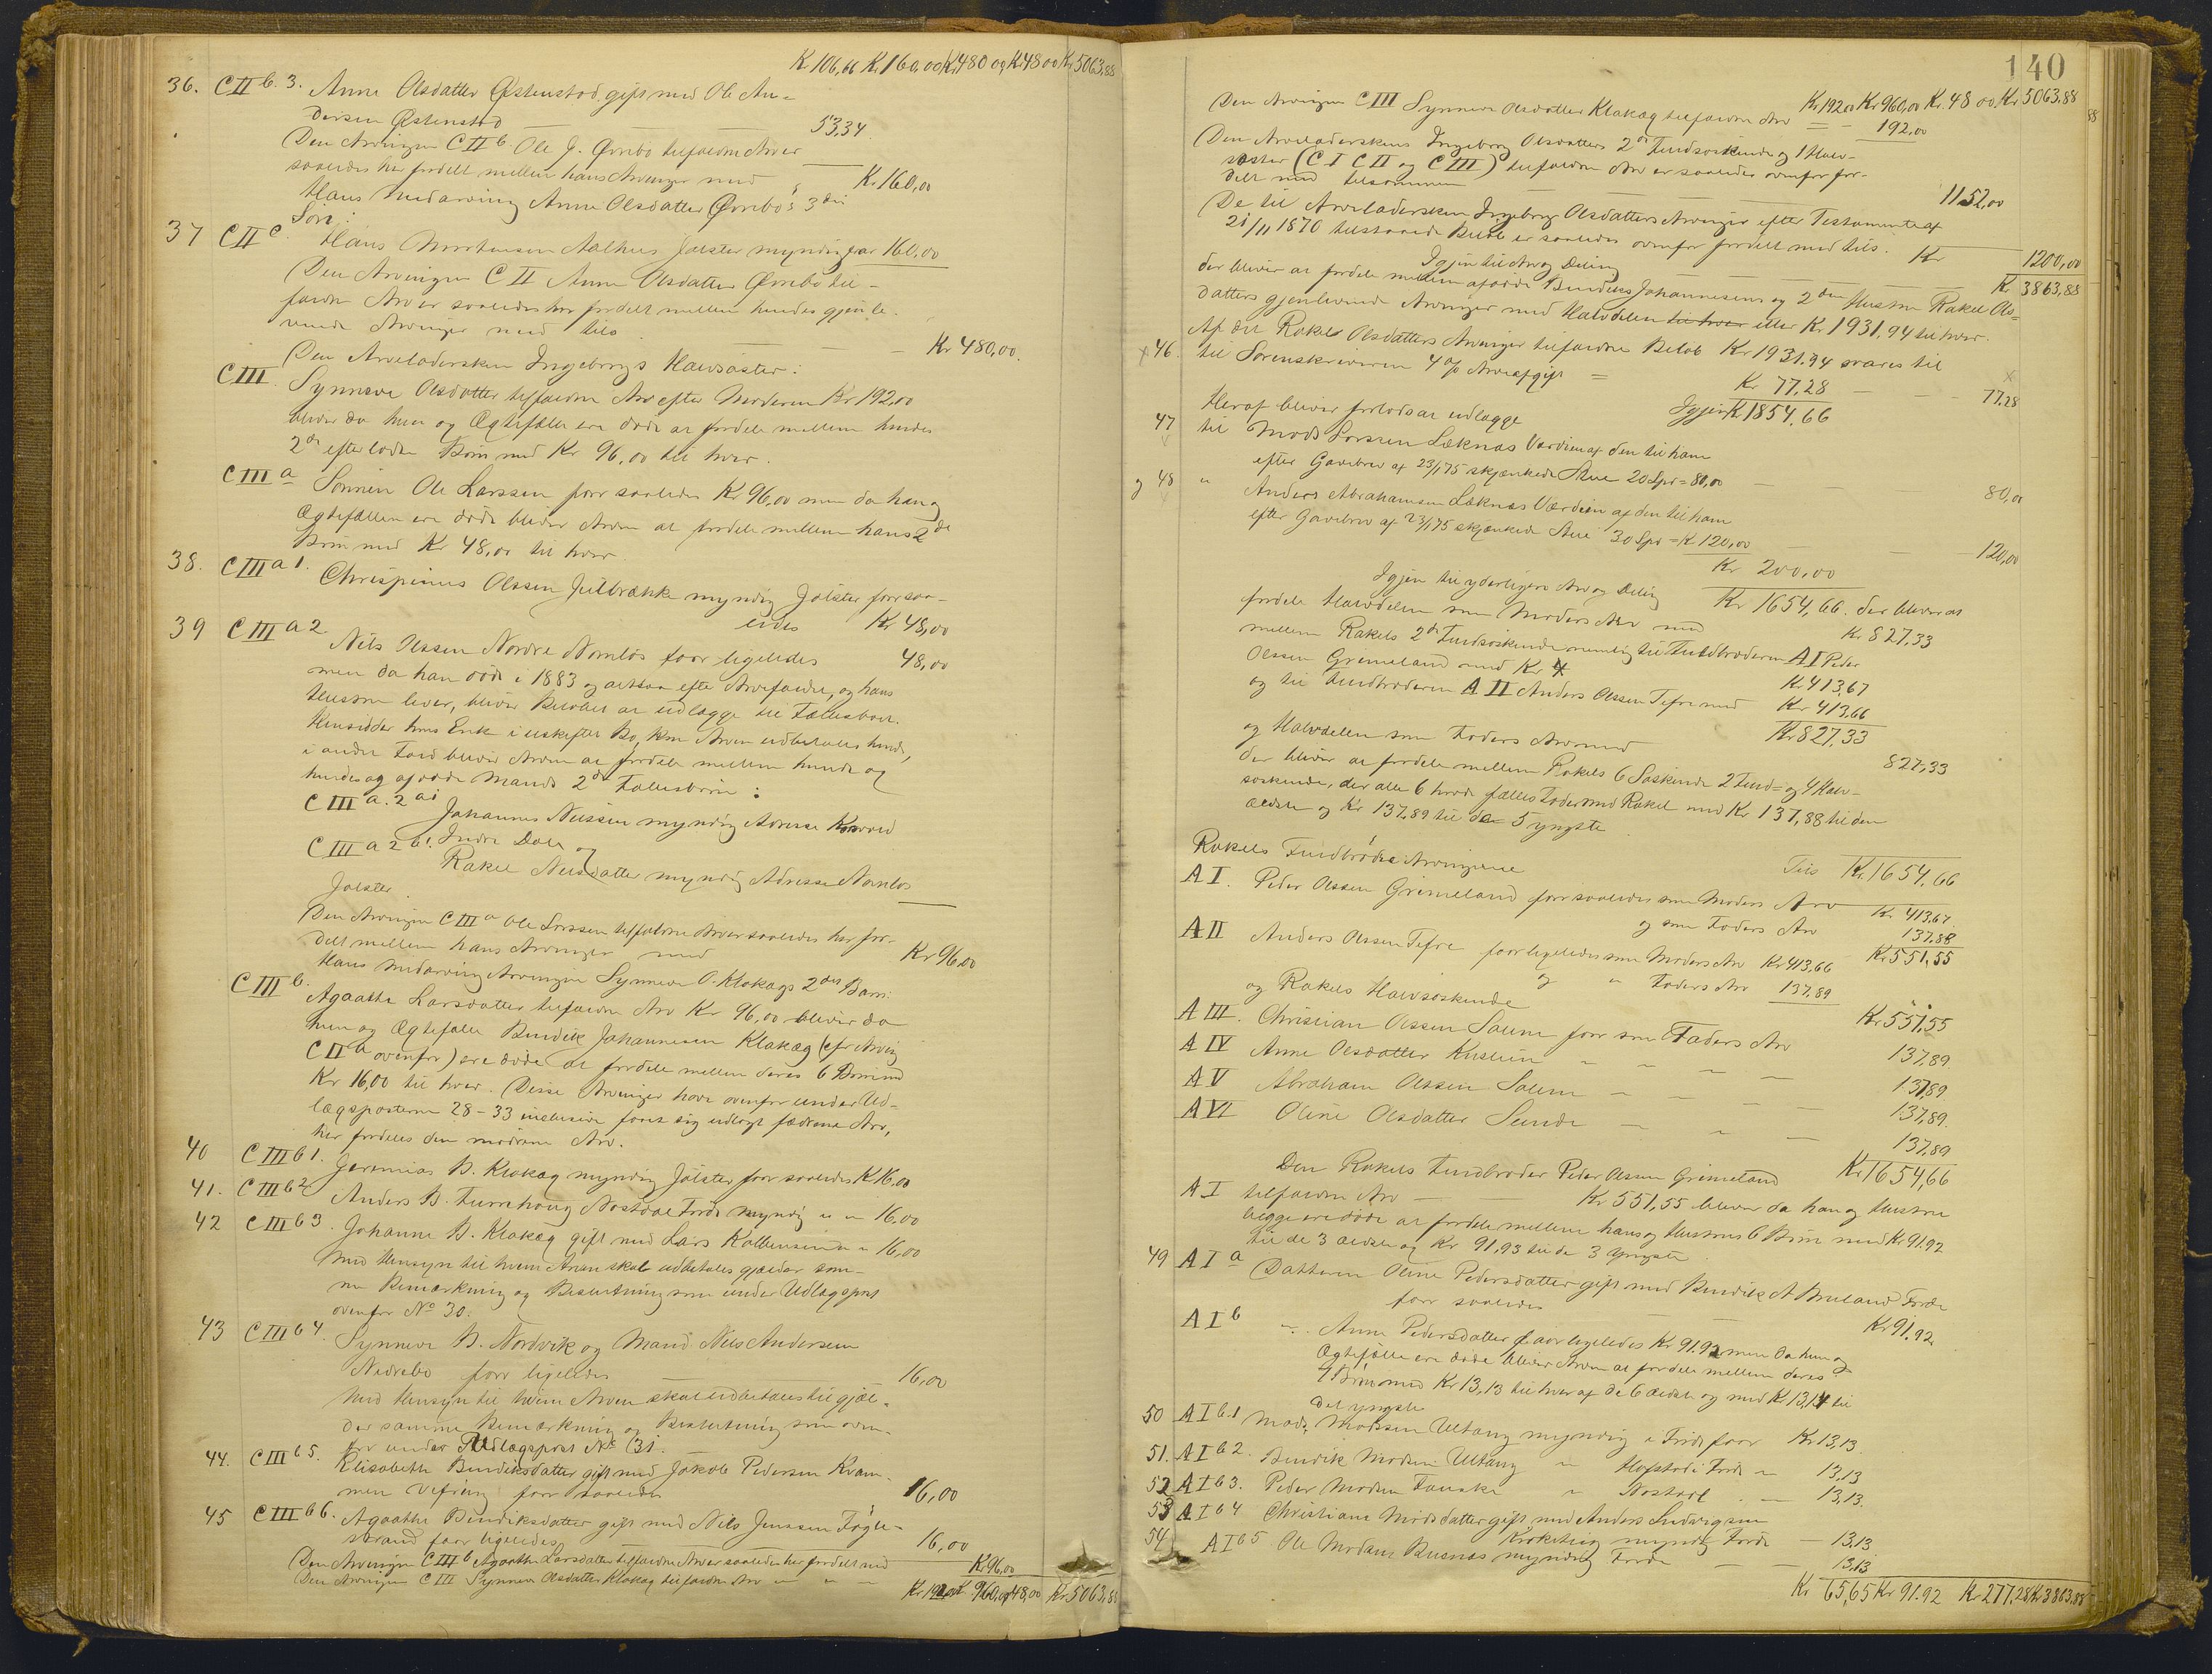 Kr 106,66 Kr 160,00 Kr 480 og Kr 48 00 Kr 5063,88
36. C II b. 3. Anne Olsdatter Østenstad gift med Ole An-
dersen Østenstad 53,34
Den Arvingen C II b Ole J. Ørrebø tilfaldne Arv er
saaledes her fordelt mellem hans Arvinger med Kr 160,00
Hans Medarving Anne Olsdatter Ørrebø's 3die
Søn:
37 C II c. Hans Mortensen Aalhus Jølster myndig faar 160,00
Den Arvingen C II Anne Olsdatter Ørrebø til-
faldne Arv er saaledes her fordelt mellem hendes gjenle-
vende Arvinger med tils Kr 480,00.
Den Arveladersken Ingeborgs Halvsøster:
C III. Synneve Olsdatter tilfaldne Arv efter Moderen Kr 192,00
bliver da hun og Ægtefælle ere døde at fordele mellem hendes
2de efterladte Børn med Kr 96,00 til hver.
C III a Sønnen Ole Larssen faar saaledes Kr 96,00 men da han og
Ægtefællen ere døde bliver Arven at fordele mellem hans 2de
Børn med Kr 48,00 til hver
38. C III a 1. Chrispinus Olssen Julbrække myndig Jølster faar saa-
ledes Kr 48,00
39 C III a 2 Nils Olssen Nordre Namløs faar ligeledes 48,00
men da han døde i 1883 og altsaa efter Arvefaldet, og hans
Hustru lever, bliver Beløbet at udlægge til Fællesboet.
Hensidder hans Enke i uskiftet Bo, kan Arven udbetales hende,
i andet Fald bliver Arven at fordele mellem hende og
hendes og afdøde Mands 2de Fællesbørn:
C III a. 2 a: Johannes Nilssen myndig Adresse
Indre Dale og
C III a 2 b: Rakel Nilsdatter myndig Adresse Namløs
Jølster
Den Arvingen C III a Ole Larssen tilfaldne Arv er saaledes her for-
delt mellem hans Arvinger med Kr 96,00
Hans Medarving Arvingen Synneve O. Klakegs 2det Barn:
C III b. Agaathe Larsdatter tilfaldne Arv Kr 96,00 bliver da
hun og Ægtefælle Bendik Johannesen Klakeg (cfr Arving
C II a ovenfor) ere døde at fordele mellem deres 6 Børn med
Kr 16,00 til hver. Disse Arvinger have ovenfor under Ud-
lægsposterne 28-33 inclusive faaet sig udlagt fædrene Arv,
her fordeles den mødrene Arv.
40 C III b 1. Jeremias B. Klakeg myndig Jølster faar saaledes Kr 16,00
41. C III b 2 Anders B. Furrehaug Naustdal Førde myndig " " 16,00
42 C III b 3. Johanne B. Klakeg gift med Lars Kolbeinsen " " 16,00
Med Hensyn til hvem Arven skal udbetales gjælder sam-
me Bemærkning og Beslutning som under Udlægspost
ovenfor No 30.
43 C III b 4. Synneve B. Nordvik og Mand Nils Andersen
Nedrebø faar ligeledes 16,00
Med Hensyn til hvem Arven skal udbetales til gjæl-
der samme Bemærkning og Beslutning som oven-
for under Udlægspost No 31.
44. C III b 5. Elisabeth Bendiksdatter gift med Jakob Pedersen Kvam-
men Vefring faar saaledes 16,00
45 C III b 6. Agaathe Bendiksdatter gift med Nils Jenssen Fugle-
strand faar ligeledes 16,00
Den Arvingen C III b Agaathe Larsdatter tilfaldne Arv er saaledes her fordelt med Kr 96,00
Den Arvingen C III Synneve Olsdatter Klakeg tilfaldne Arv " " " Kr 192,00 Kr 960,00 48,00 Kr 5063,88
140
Kr 192,00 Kr 960,00 Kr. 48 00 Kr 5063.88
Den Arvingen C III Synneve Olsdatter Klakeg tilfaldne Arv = - 192,00
Den Arveladersken Ingeborg Olsdatters 2de Fuldsøskende og 1 Halv-
søster (C I C II og C III) tilfaldne Arv er saaledes ovenfor for-
delt med tilsammen 1152,00
De til Arveladersken Ingeborg Olsdatters Arvinger efter Testamente af
21/11 1870 tilstaaede Beløb er saaledes ovenfor fordelt med tils. Kr 1200,00
Igjen til Arv og Deling Kr 3863,88
der bliver at fordele mellem afdøde Bendiks Johannesens og 2den Hustru Rakel Ols-
datters gjenlevende Arvinger med Halvdelen til hver eller Kr 1931,94 til hver.
Af det Rakel Olsdatters Arvinger tilfaldne Beløb Kr 1931.94 svares til
46. til Sorenskriveren 4 % Arveafgift = Kr 77,28 77,28
Igjen Kr 1854,66
Heraf bliver forlods at udlægge
47 til Mads Larssen Læknes Værdien af den til ham
efter Gavebrev af 23/1 75 skjænkede Stue 20 Spd = 80,00 80,00
og 48 " Anders Abrahamsen Læknes Værdien af den til ham
efter Gavebrev af 23/1 75 skjænkede Stue 30 Spd = Kr 120,00 120,00
Kr 200,00
Igjen til yderligere Arv og Deling Kr 1654,66. der bliver at
fordele Halvdelen som Moders Arv med Kr. 827,33
mellem Rakels 2de Fuldsøskende nemlig til Fuldbroderen A I Peder
Olssen Grimeland med Kr. 4 Kr 413,67
og til Fuldbroderen A II Anders Olssen Tefre med Kr 413,66
Kr 827,33
og Halvdelen som Faders Arv med 827,33
der bliver at fordele mellem Rakels 6 Søskende 2 Fuld- og 4 Halv-
søskende, der alle 6 havde fælles Fader med Rakel med Kr 137,88 til den
ældste og Kr 137,89 til de 5 yngste
Tils Kr. 1654,66
Rakels Fuldbrødre Arvingerne
A I. Peder Olssen Grimeland faar saaledes som Moders Arv Kr 413,67
og som Faders Arv 137,88
Kr 551,55
A II Anders Olssen Tefre faar ligeledes som Moders Arv Kr 413,66
og " Faders Arv 137,89
Kr 551,55
og Rakels Halvsøskende
A III. Christian Olssen Sæle faar som Faders Arv 137,89
A IV Anne Olsdatter " - - 137,89
A V Abraham Olssen - - - 137,89.
A VI Oline Olsdatter Sunde - - - 137,89
Kr 1654,66
Den Rakels Fuldbroder Peder Olssen Grimeland
A I tilfaldne Arv - - Kr 551,55 bliver da han og Hustru
begge ere døde at fordele mellem hans og Hustrus 6 Børn med Kr 91.92
til de 3 ældste og Kr 91,93 til de 3 yngste.
49 A I a Datteren Oline Pedersdatter gift med Bendik A Bruland Førde
faar saaledes Kr 91.92
A I b " . Anne Pedersdatter faar ligeledes Kr 91.92 men da hun og
Ægtefælle ere døde bliver Arven at fordele mellem deres
7 Børn med Kr 13,13 til hver af de 6 ældste og med Kr 13,14 til
det yngste
50 A I b.1 Mads Madssen Ultang myndig i Førde faar Kr 13,13.
51. A I b 2. Bendik Madsen Ultang " Hafstad i Førde " 13,13
52 A I b 3. Peder Madsen " Naustdal . - 13,13.
53 A I b 4 Christiane Madsdatter gift med Anders Ludvigsen
myndig Førde - 13,13
54 A I b 5 Ole Madsen myndig Førde - 13,13
Kr 65,65 Kr 91.92 Kr 277,28 Kr 3863,88